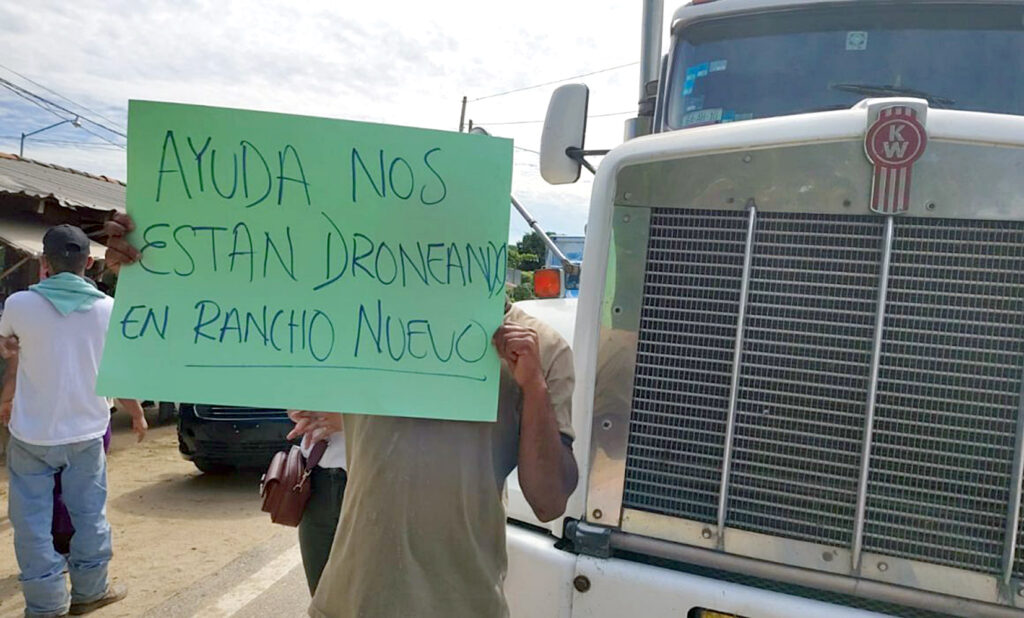 AYUDA NOS
ESTAN DRONEANDO
EN RANCHO NUEVO
KW